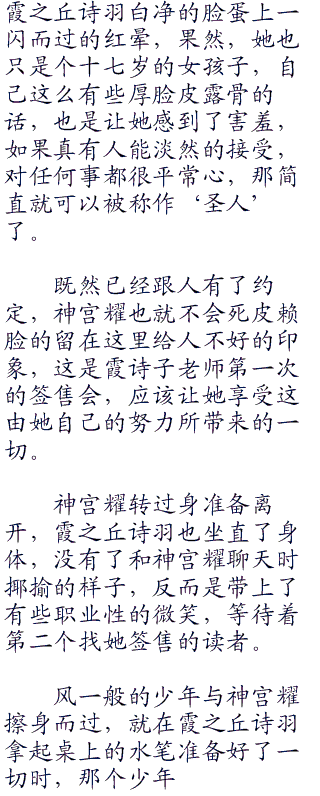 霞之丘诗羽白净的脸蛋上一
闪而过的红晕，果然，她也
只是个十七岁的女孩子，自
己这么有些厚脸皮露骨的
话，也是让她感到了害羞，
如果真有人能淡然的接受，
对任何事都很平常心，那简
直就可以被称作‘圣人’
了。
既然已经跟人有了约
定，神宫耀也就不会死皮赖
脸的留在这里给人不好的印
象，这是霞诗子老师第一次
的签售会，应该让她享受这
由她自己的努力所带来的一
切。
神宫耀转过身准备离
开，霞之丘诗羽也坐直了身
体，没有了和神宫耀聊天时
揶揄的样子，反而是带上了
有些职业性的微笑，等待着
第二个找她签售的读者。
风一般的少年与神宫耀
擦身而过，就在霞之丘诗羽
拿起桌上的水笔准备好了一
切时，那个少年